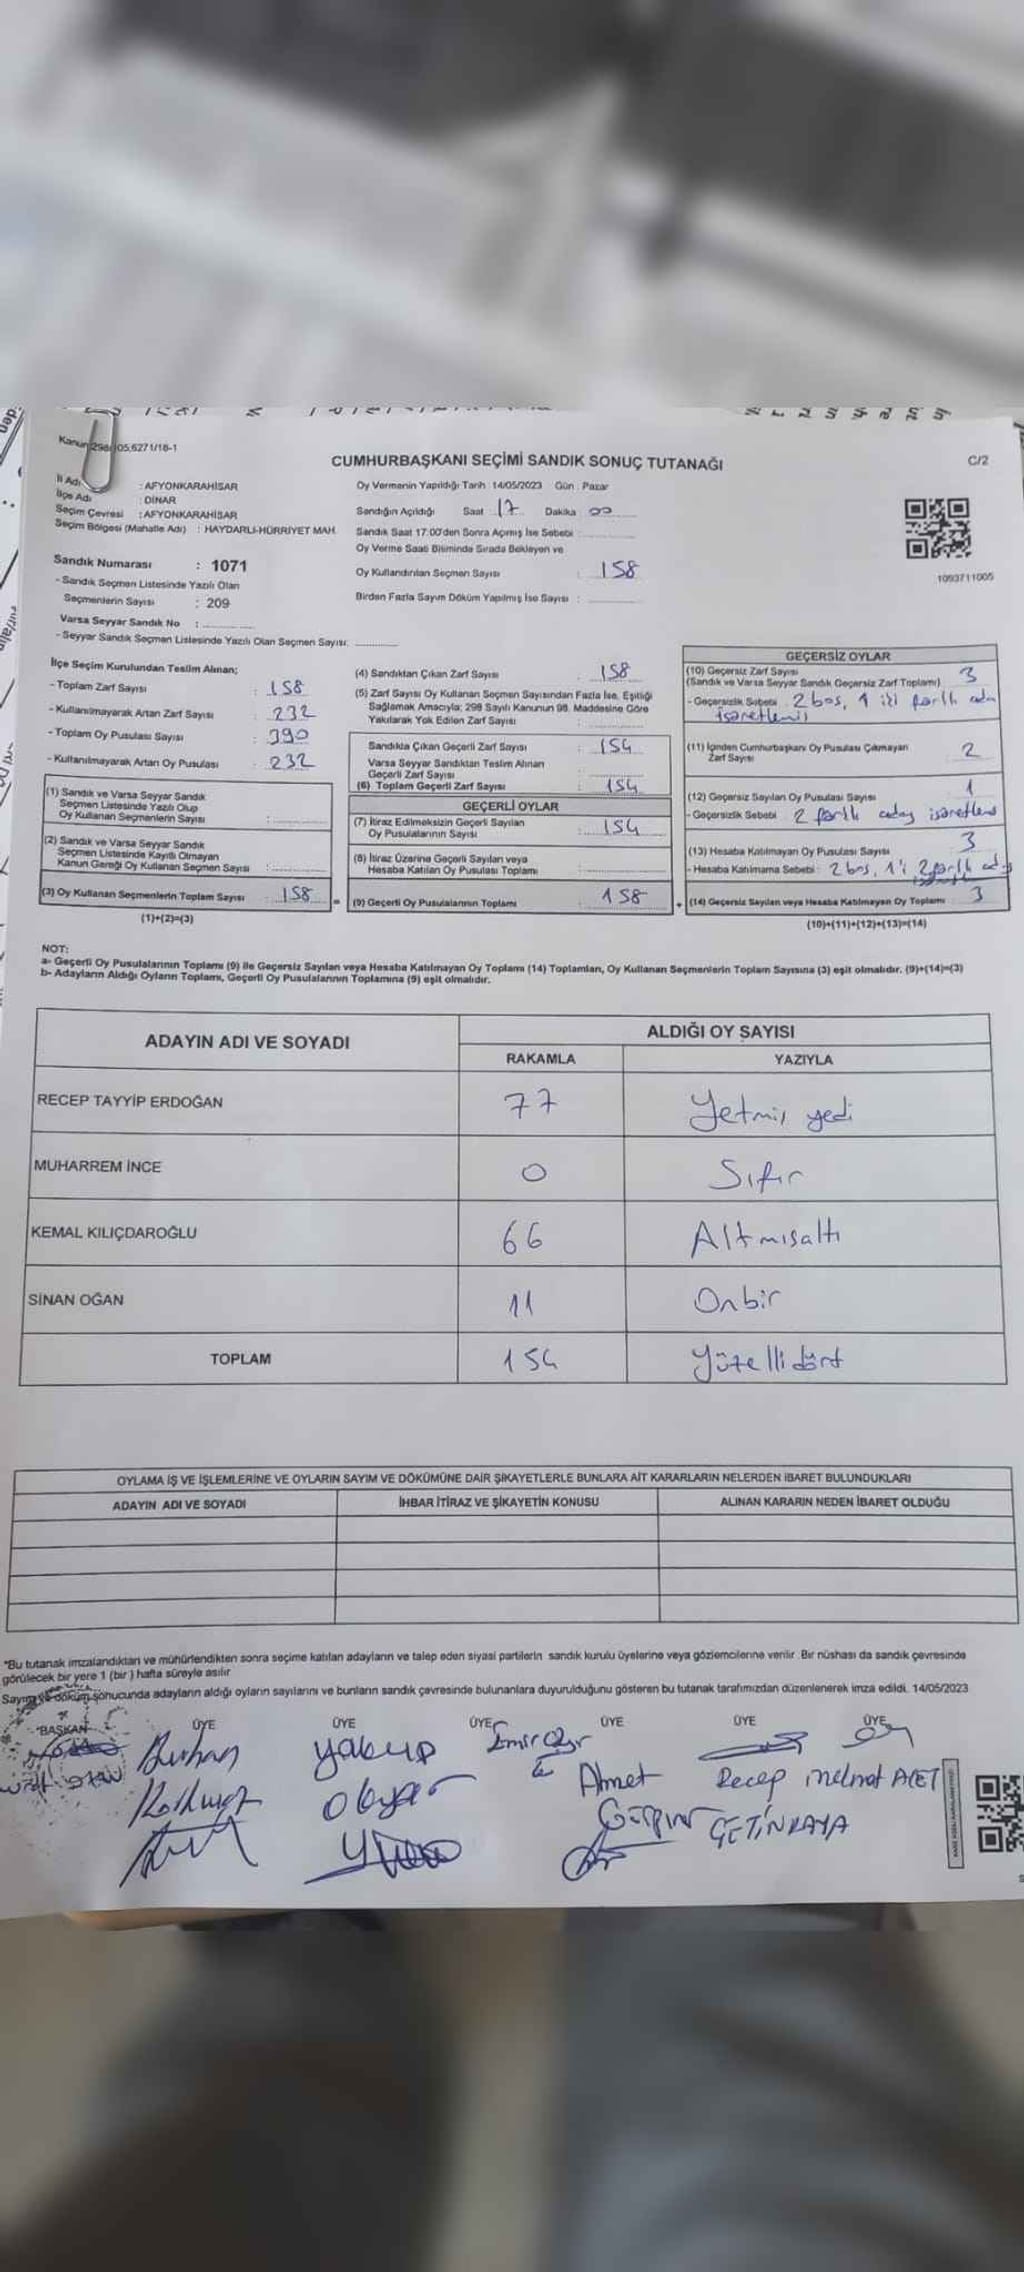 Kanun 298 05,6271/18-1
CUMHURBAŞKANI SEÇİMİ SANDIK SONUÇ TUTANAĞI
C/2
İl Adı : AFYONKARAHİSAR
İlçe Adı : DİNAR
Seçim Çevresi : AFYONKARAHİSAR
Seçim Bölgesi (Mahalle Adı) : HAYDARLI-HÜRRİYET MAH.
Sandık Numarası : 1071
- Sandık Seçmen Listesinde Yazılı Olan
Seçmenlerin Sayısı : 209
Varsa Seyyar Sandık No :
- Seyyar Sandık Seçmen Listesinde Yazılı Olan Seçmen Sayısı:
Oy Vermenin Yapıldığı Tarih : 14/05/2023 Gün : Pazar
Sandığın Açıldığı Saat 17 Dakika 00
Sandık Saat 17:00'den Sonra Açılmış İse Sebebi :
Oy Verme Saati Bitiminde Sırada Bekleyen ve
Oy Kullandırılan Seçmen Sayısı : 158
Birden Fazla Sayım Döküm Yapılmış İse Sayısı :
1093711005
İlçe Seçim Kurulundan Teslim Alınan;
- Toplam Zarf Sayısı : 158
- Kullanılmayarak Artan Zarf Sayısı : 232
- Toplam Oy Pusulası Sayısı : 390
- Kullanılmayarak Artan Oy Pusulası : 232
(1) Sandık ve Varsa Seyyar Sandık
Seçmen Listesinde Yazılı Olup
Oy Kullanan Seçmenlerin Sayısı :
(2) Sandık ve Varsa Seyyar Sandık
Seçmen Listesinde Kayıtlı Olmayan
Kanun Gereği Oy Kullanan Seçmen Sayısı :
(3) Oy Kullanan Seçmenlerin Toplam Sayısı : 158
(1)+(2)=(3)
(4) Sandıktan Çıkan Zarf Sayısı : 158
(5) Zarf Sayısı Oy Kullanan Seçmen Sayısından Fazla İse, Eşitliği
Sağlamak Amacıyla; 298 Sayılı Kanunun 98. Maddesine Göre
Yakılarak Yok Edilen Zarf Sayısı :
Sandıkta Çıkan Geçerli Zarf Sayısı : 154
Varsa Seyyar Sandıktan Teslim Alınan
Geçerli Zarf Sayısı
(6) Toplam Geçerli Zarf Sayısı : 154
GEÇERLİ OYLAR
(7) İtiraz Edilmeksizin Geçerli Sayılan
Oy Pusulalarının Sayısı : 154
(8) İtiraz Üzerine Geçerli Sayılan veya
Hesaba Katılan Oy Pusulası Toplamı :
= (9) Geçerli Oy Pusulalarının Toplamı : 158
GEÇERSİZ OYLAR
(10) Geçersiz Zarf Sayısı 3
(Sandık ve Varsa Seyyar Sandık Geçersiz Zarf Toplamı)
- Geçersizlik Sebebi : 2 boş, 1 iki partlı ada
işaretlemiş
(11) İçinden Cumhurbaşkanı Oy Pusulası Çıkmayan
Zarf Sayısı 2
(12) Geçersiz Sayılan Oy Pusulası Sayısı 1
- Geçersizlik Sebebi 2 partlı aday işaretlens
(13) Hesaba Katılmayan Oy Pusulası Sayısı 3
- Hesaba Katılmama Sebebi : 2 boş, 1'i 2 partlı ady
+ (14) Geçersiz Sayılan veya Hesaba Katılmayan Oy Toplamı 3
(10)+(11)+(12)+(13)=(14)
NOT:
a- Geçerli Oy Pusulalarının Toplamı (9) ile Geçersiz Sayılan veya Hesaba Katılmayan Oy Toplamı (14) Toplamları, Oy Kullanan Seçmenlerin Toplam Sayısına (3) eşit olmalıdır. (9)+(14)=(3)
b- Adayların Aldığı Oyların Toplamı, Geçerli Oy Pusulalarının Toplamına (9) eşit olmalıdır.
ADAYIN ADI VE SOYADI
ALDIĞI OY SAYISI
RAKAMLA YAZIYLA
RECEP TAYYİP ERDOĞAN 77 Yetmiş yedi
MUHARREM İNCE 0 Sıfır
KEMAL KILIÇDAROĞLU 66 Altmışaltı
SİNAN OĞAN 11 Onbir
TOPLAM 154 Yüzellidört
OYLAMA İŞ VE İŞLEMLERİNE VE OYLARIN SAYIM VE DÖKÜMÜNE DAİR ŞİKAYETLERLE BUNLARA AİT KARARLARIN NELERDEN İBARET BULUNDUKLARI
ADAYIN ADI VE SOYADI İHBAR İTİRAZ VE ŞİKAYETİN KONUSU ALINAN KARARIN NEDEN İBARET OLDUĞU
*Bu tutanak imzalandıktan ve mühürlendikten sonra seçime katılan adayların ve talep eden siyasi partilerin sandık kurulu üyelerine veya gözlemcilerine verilir. Bir nüshası da sandık çevresinde
görülecek bir yere 1 (bir) hafta süreyle asılır
Sayım ve döküm sonucunda adayların aldığı oyların sayılarını ve bunların sandık çevresinde bulunanlara duyurulduğunu gösteren bu tutanak tarafımızdan düzenlenerek imza edildi. 14/05/2023
BAŞKAN ÜYE ÜYE ÜYE ÜYE ÜYE ÜYE
Burhan Yakup
Ahmet Recep Mehmet
ÇETİNKAYA